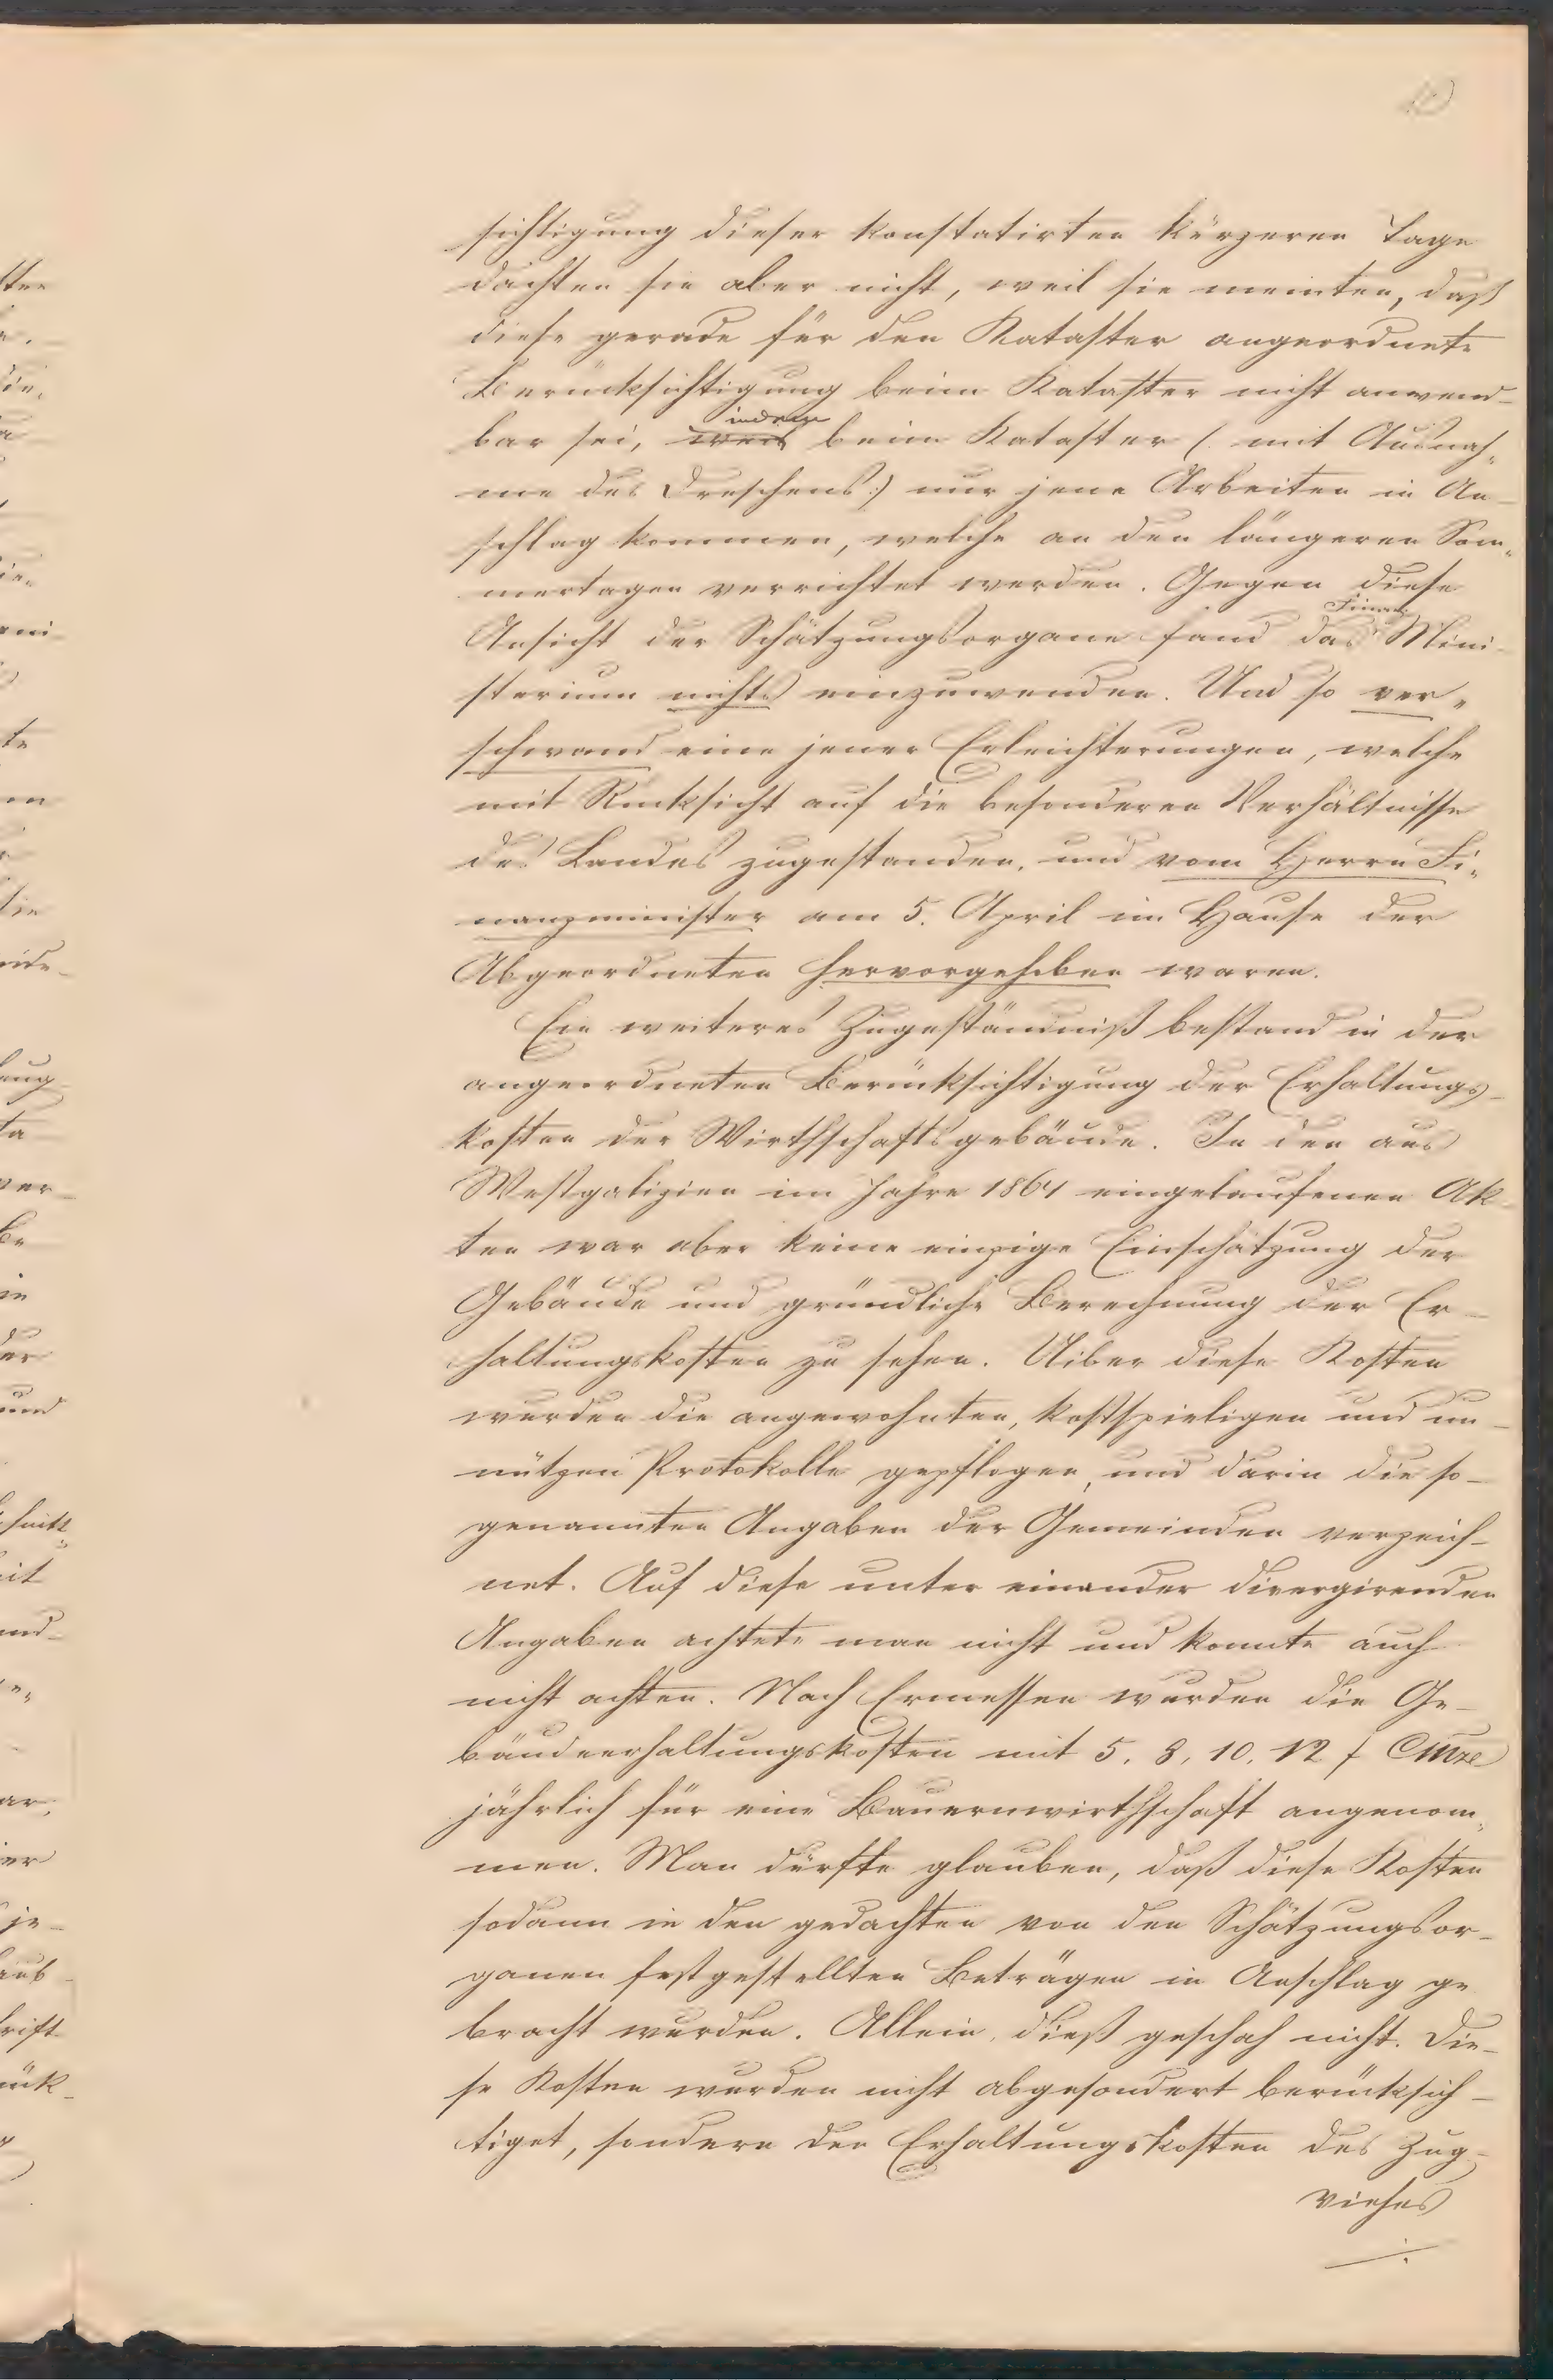 sichtigung dieser konstatirten kürzeren Tage
dachten sie aber nicht, weil sie meinten, daß
diese gerade für den Kataster angeordnete
Berücksichtigung beim Kataster nicht anwend-
bar sei, weil indem beim Kataster (: mit Ausnah-
me des Dreschens:) nur jene Arbeiten in An-
schlag kommen, welche an den längeren Som-
mertagen verrichtet werden. Gegen diese
Ansicht der Schätzungsorgane fand das Finanz Mini-
sterium nichts einzuwenden. Und so ver-
schwand eine jener Erleichterungen, welche
mit Rücksicht auf die besonderen Verhältnisse
des Landes zugestanden, und vom Herrn Fi-
nanzminister am 5. April im Hause der
Abgeordneten hervorgehoben waren.
Ein weiteres Zugeständniß bestand in der
angeordneten Berücksichtigung der Erhaltungs-
kosten der Wirthschaftsgebäude. In den aus
Westgalizien im Jahre 1864 eingelaufenen Ak-
ten war aber keine einzige Einschätzung der
Gebäude und gründliche Berechnung der Er-
haltungskosten zu sehen. Uiber diese Kosten
wurden die angewohnten, kostspieligen und un-
nützen Protokolle gepflogen, und darin die so-
genannten Angaben der Gemeinden verzeich-
net. Auf diese unter einander divergirenden
Angaben achtete man nicht und konnte auch
nicht achten. Nach Ermessen wurden die Ge-
bäudeerhaltungskosten mit 5, 8, 10, 12 f CMze
jährlich für eine Bauernwirthschaft angenom-
men. Man dürfte glauben, daß diese Kosten
sodann in den gedachten von den Schätzungsor-
ganen festgestellten Beträgen in Anschlag ge
bracht wurden. Allein, dieß geschah nicht. Die-
se Kosten wurden nicht abgesondert berücksich-
tiget, sondern den Erhaltungskosten des Zug-
viehes